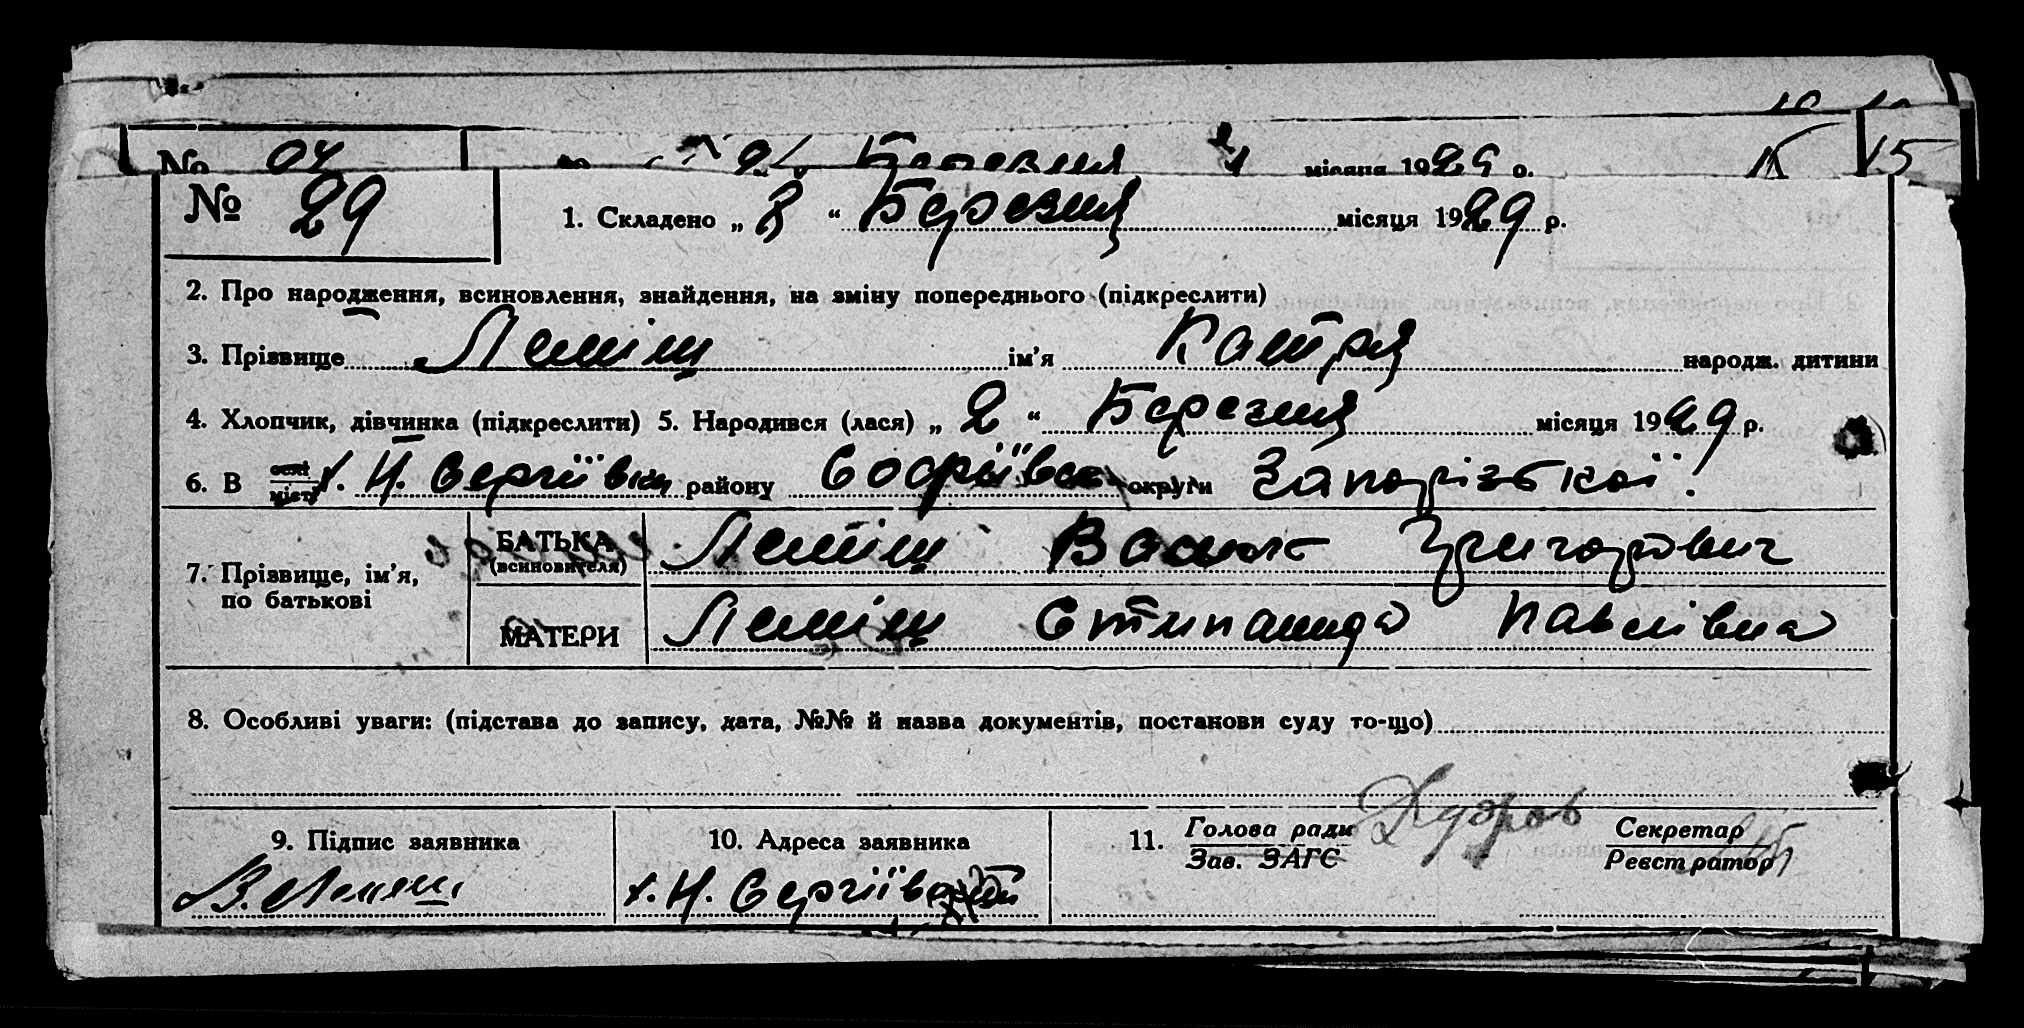 № 29
1. Складено „ 8 “ Березня місяця 1929 р.
2. Про народження, всиновлення, знайдення, на зміну попереднього (підкреслити)
3. Прізвище Леміш ім’я Катря народж. дитини
4. Хлопчик, дівчинка (підкреслити) 5. Народився (лася) „ 2 “ Березня місяця 1929 р.
6. В селі місті х. Н. Сергіївка району Софіївськ округи Запорізької
7. Прізвище, ім’я, по батькові
БАТЬКА (всиновителя) Леміш Григорович
МАТЕРИ Леміш Степанида Павлівна
8. Особливі уваги: (підстава до запису, дата, №№ й назва документів, постанови суду то-що)
9. Підпис заявника
10. Адреса заявника
11. Голова ради Зав. ЗАГС
Секретар Реєстратор
В. Леміш
х. Н. Сергіївка